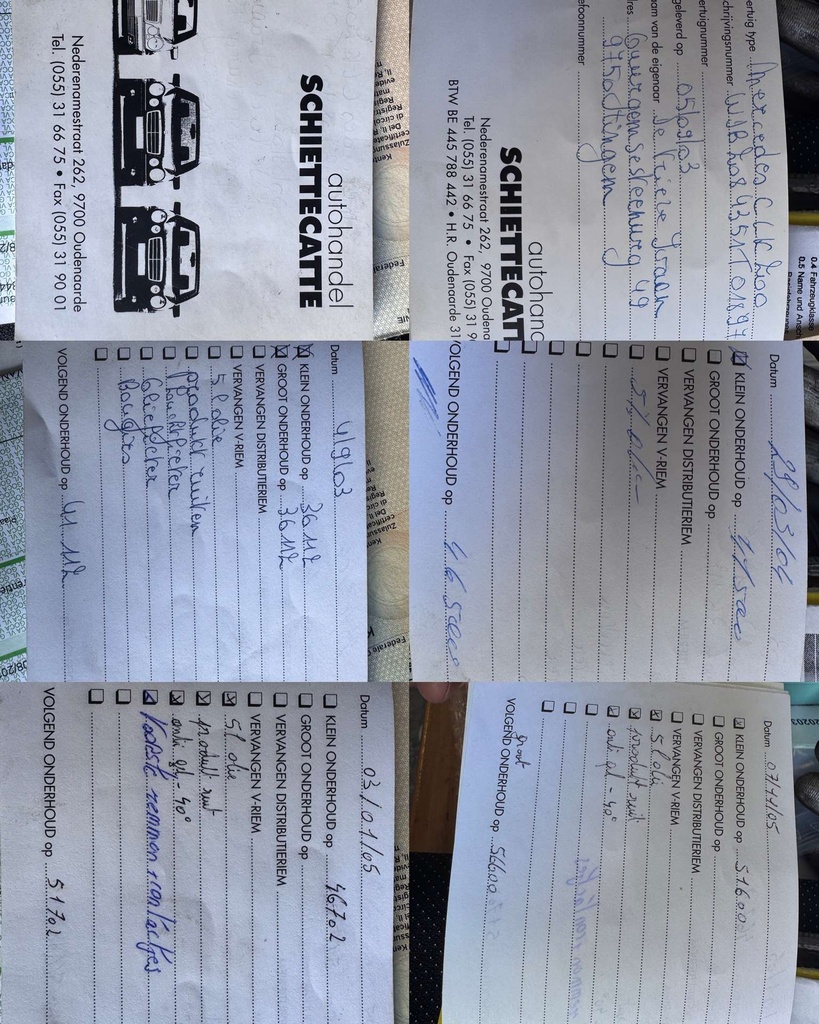 autohandel
SCHIETTECATTE
Nederenamestraat 262, 9700 Oudenaarde
Tel. (055) 31 66 75 • Fax (055) 31 90 01
ertuig type Mercedes CLK 200
chrijvingsnummer
ertuignummer
geleverd op 05/09/03
am van de eigenaar
res 49
9750 Zingem
efoonnummer
autohand
SCHIETTECATT
Nederenamestraat 262, 9700 Oudena
Tel. (055) 31 66 75 • Fax (055) 31 9
BTW BE 445 788 442 • H.R. Oudenaarde 31
0.4 Fahrzeugklasse
0.5 Name und
Datum 4/9/03
KLEIN ONDERHOUD op 36112
GROOT ONDERHOUD op 36112
VERVANGEN DISTRIBUTIERIEM
VERVANGEN V-RIEM
5l olie
product ruiten
luchtfilter
oliefilter
Bougies
VOLGEND ONDERHOUD op 41.112
Datum 29/03/04
KLEIN ONDERHOUD op 41500
GROOT ONDERHOUD op
VERVANGEN DISTRIBUTIERIEM
VERVANGEN V-RIEM
OLGEND ONDERHOUD op 46500
Datum 03/01/05
KLEIN ONDERHOUD op 46702
GROOT ONDERHOUD op
VERVANGEN DISTRIBUTIERIEM
VERVANGEN V-RIEM
5l olie
product ruit
anti gel - 40°
Voorste remmen + contactjes
VOLGEND ONDERHOUD op 51702
Datum 07/11/05
KLEIN ONDERHOUD op 51600
GROOT ONDERHOUD op
VERVANGEN DISTRIBUTIERIEM
VERVANGEN V-RIEM
5l olie
product ruit
anti gel - 40°
groot
VOLGEND ONDERHOUD op 56600